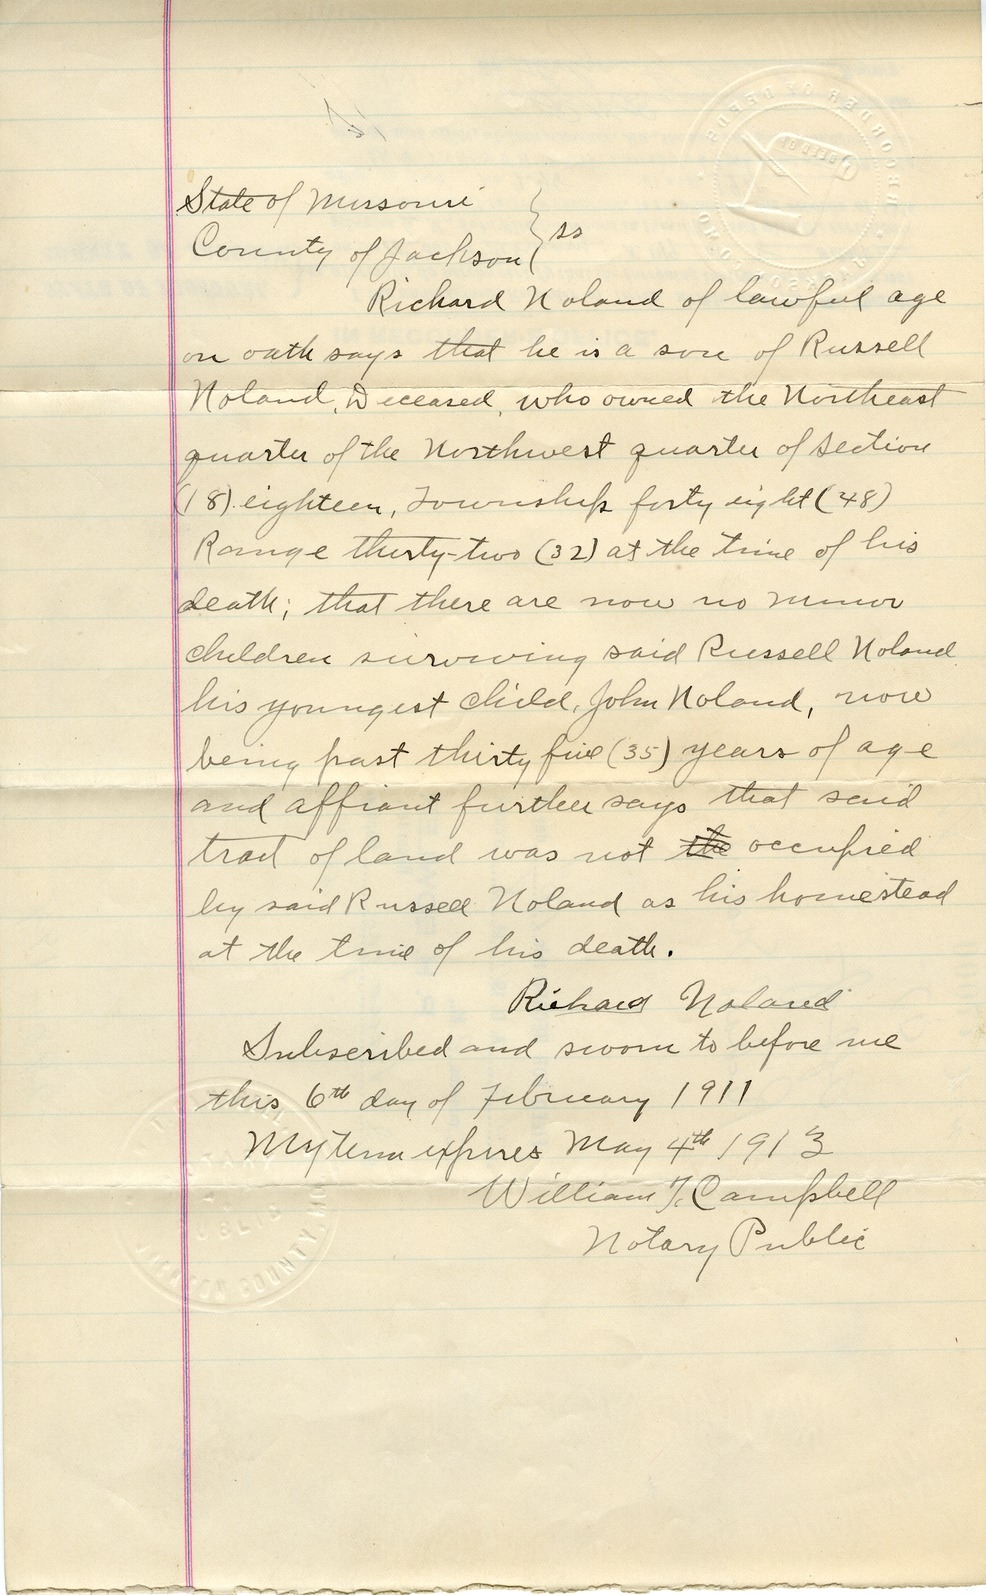 State of Missouri } ss
County of Jackson
Richard Noland of lawful age
on oath says that he is a son of Russell
Noland, Deceased, who owned the Northeast
quarter of the Northwest quarter of Section
(18) eighteen, Township forty eight (48)
Range thirty-two (32) at the time of his
death; that there are now no minor
children surviving said Russell Noland
his youngest child, John Noland, now
being past thirty five (35) years of age
and affiant further says that said
tract of land was not the occupied
by said Russell Noland as his homestead
at the time of his death.
Richard Noland
Subscribed and sworn to before me
this 6th day of February 1911
My term expires May 4th 1913
William T. Campbell
Notary Public